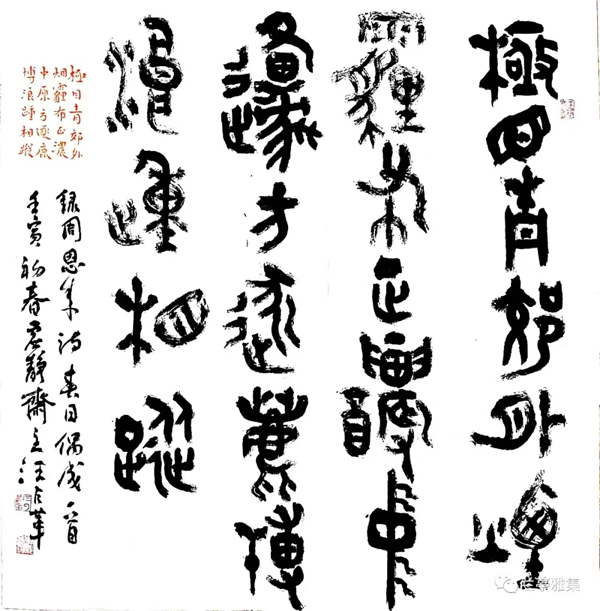 極目青郊外煙
霾布正濃中
邍方逐鹿博
浪踵相蹤
極目青郊外
烟霾布正濃
中原方逐鹿
博浪踵相蹤
録周恩来詩春日偶成一首
壬寅初春静齋主汪革
雅集